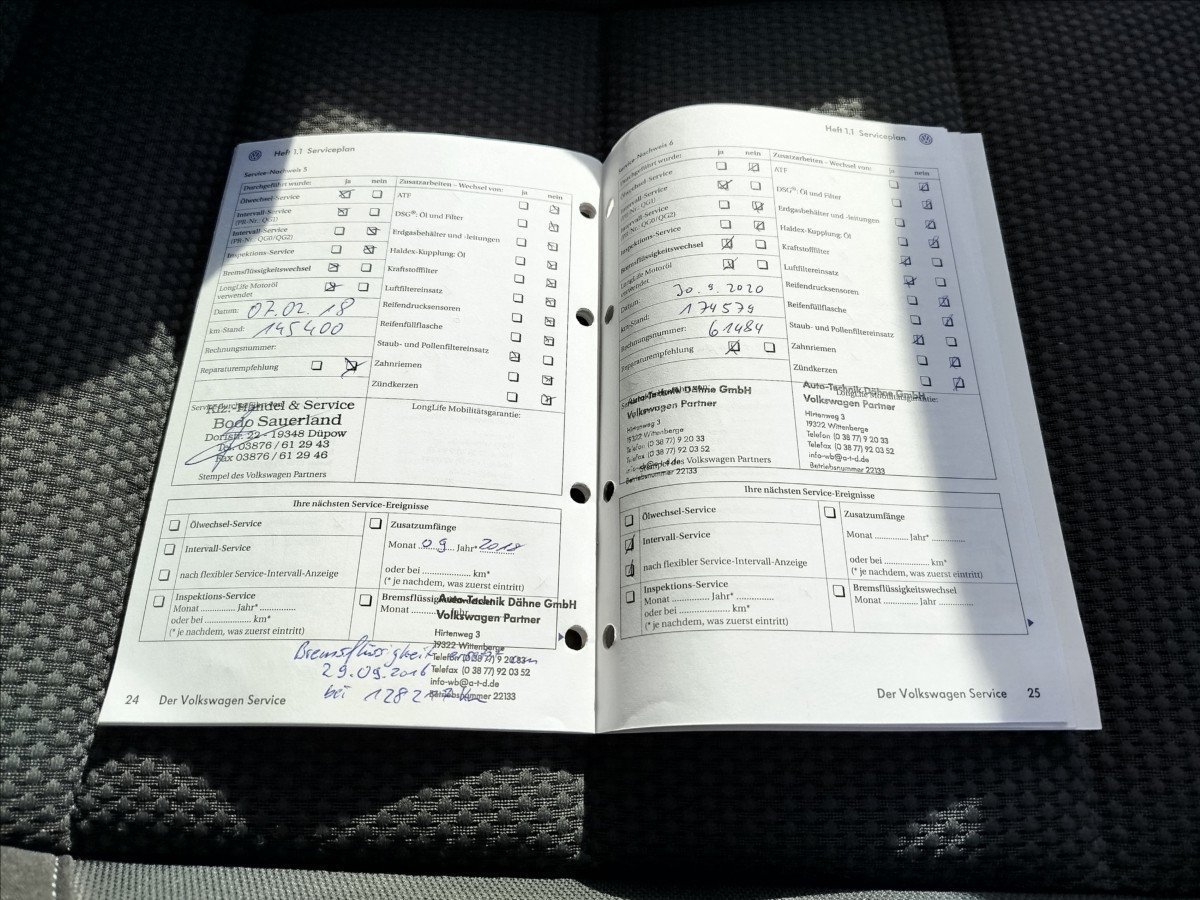 Heft 1.1 Serviceplan
Service-Nachweis 5
Durchgeführt wurde: ja nein
Ölwechsel-Service
Intervall-Service
(PR-Nr.: QG1)
Intervall-Service
(PR-Nr.: QG0/QG2)
Inspektions-Service
Bremsflüssigkeitswechsel
LongLife Motoröl
verwendet
Datum: 07.02.18
km-Stand: 145400
Rechnungsnummer:
Reparaturempfehlung
Zusatzarbeiten – Wechsel von: ja nein
ATF
DSG®: Öl und Filter
Erdgasbehälter und -leitungen
Haldex-Kupplung: Öl
Kraftstofffilter
Luftfiltereinsatz
Reifendrucksensoren
Reifenfüllflasche
Staub- und Pollenfiltereinsatz
Zahnriemen
Zündkerzen
Kfz.-Handel & Service
Bodo Sauerland
Dorfstr. 22 - 19348 Düpow
Tel. 03876 / 61 29 43
Fax 03876 / 61 29 46
Stempel des Volkswagen Partners
LongLife Mobilitätsgarantie:
Ihre nächsten Service-Ereignisse
Ölwechsel-Service
Intervall-Service
nach flexibler Service-Intervall-Anzeige
Inspektions-Service
Monat ........... Jahr* ............
oder bei ....................... km*
(* je nachdem, was zuerst eintritt)
Zusatzumfänge
Monat 09 Jahr* 2018
oder bei ....................... km*
(* je nachdem, was zuerst eintritt)
Bremsflüssigkeitswechsel
Monat ........... Jahr
Auto-Technik Dähne GmbH
Volkswagen Partner
Hirtenweg 3
19322 Wittenberge
Telefon (0 38 77) 9 20 33
Telefax (0 38 77) 92 03 52
info-wb@a-t-d.de
Betriebsnummer 22133
Bremsflüssigkeit ersetzt am
29.09.2016
bei 128217 km
24 Der Volkswagen Service
Heft 1.1 Serviceplan
Service-Nachweis 6
Durchgeführt wurde: ja nein
Ölwechsel-Service
Intervall-Service
(PR-Nr.: QG1)
Intervall-Service
(PR-Nr.: QG0/QG2)
Inspektions-Service
Bremsflüssigkeitswechsel
LongLife Motoröl
verwendet
Datum: 30.9.2020
km-Stand: 174579
Rechnungsnummer: 61484
Reparaturempfehlung
Zusatzarbeiten – Wechsel von: ja nein
ATF
DSG®: Öl und Filter
Erdgasbehälter und -leitungen
Haldex-Kupplung: Öl
Kraftstofffilter
Luftfiltereinsatz
Reifendrucksensoren
Reifenfüllflasche
Staub- und Pollenfiltereinsatz
Zahnriemen
Zündkerzen
Auto-Technik Dähne GmbH
Volkswagen Partner
Hirtenweg 3
19322 Wittenberge
Telefon (0 38 77) 9 20 33
Telefax (0 38 77) 92 03 52
info-wb@a-t-d.de
Stempel des Volkswagen Partners
Betriebsnummer 22133
LongLife Mobilitätsgarantie:
Auto-Technik Dähne GmbH
Volkswagen Partner
Hirtenweg 3
19322 Wittenberge
Telefon (0 38 77) 9 20 33
Telefax (0 38 77) 92 03 52
info-wb@a-t-d.de
Betriebsnummer 22133
Ihre nächsten Service-Ereignisse
Ölwechsel-Service
Intervall-Service
nach flexibler Service-Intervall-Anzeige
Inspektions-Service
Monat ........... Jahr* ............
oder bei ....................... km*
(* je nachdem, was zuerst eintritt)
Zusatzumfänge
Monat ........... Jahr* ............
oder bei ....................... km*
(* je nachdem, was zuerst eintritt)
Bremsflüssigkeitswechsel
Monat ........... Jahr ............
Der Volkswagen Service 25